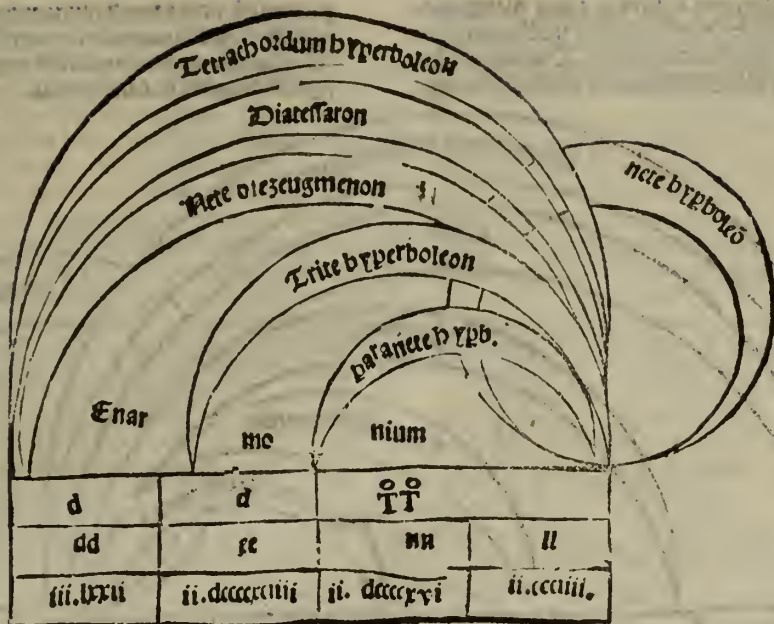 Tetrachordum hyperboleon
Diatessaron
nete hypboleō
Nete diezeugmenon
Trite hyperboleon
paranete hypb.
Enar mo nium
d d T̊T̊
dd xe nn ll
iii.lxxii ii.dccccxciiii ii. dccccxvi ii.ccciiii.